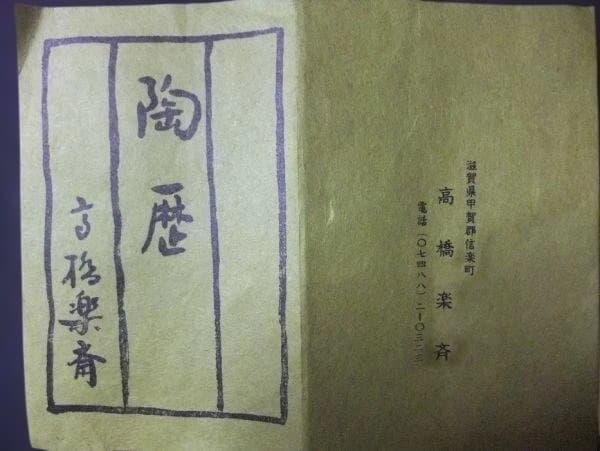 陶歴
高橋楽斎
滋賀県甲賀郡信楽町
高橋楽斉
電話(〇七四八八)二ー〇三二三